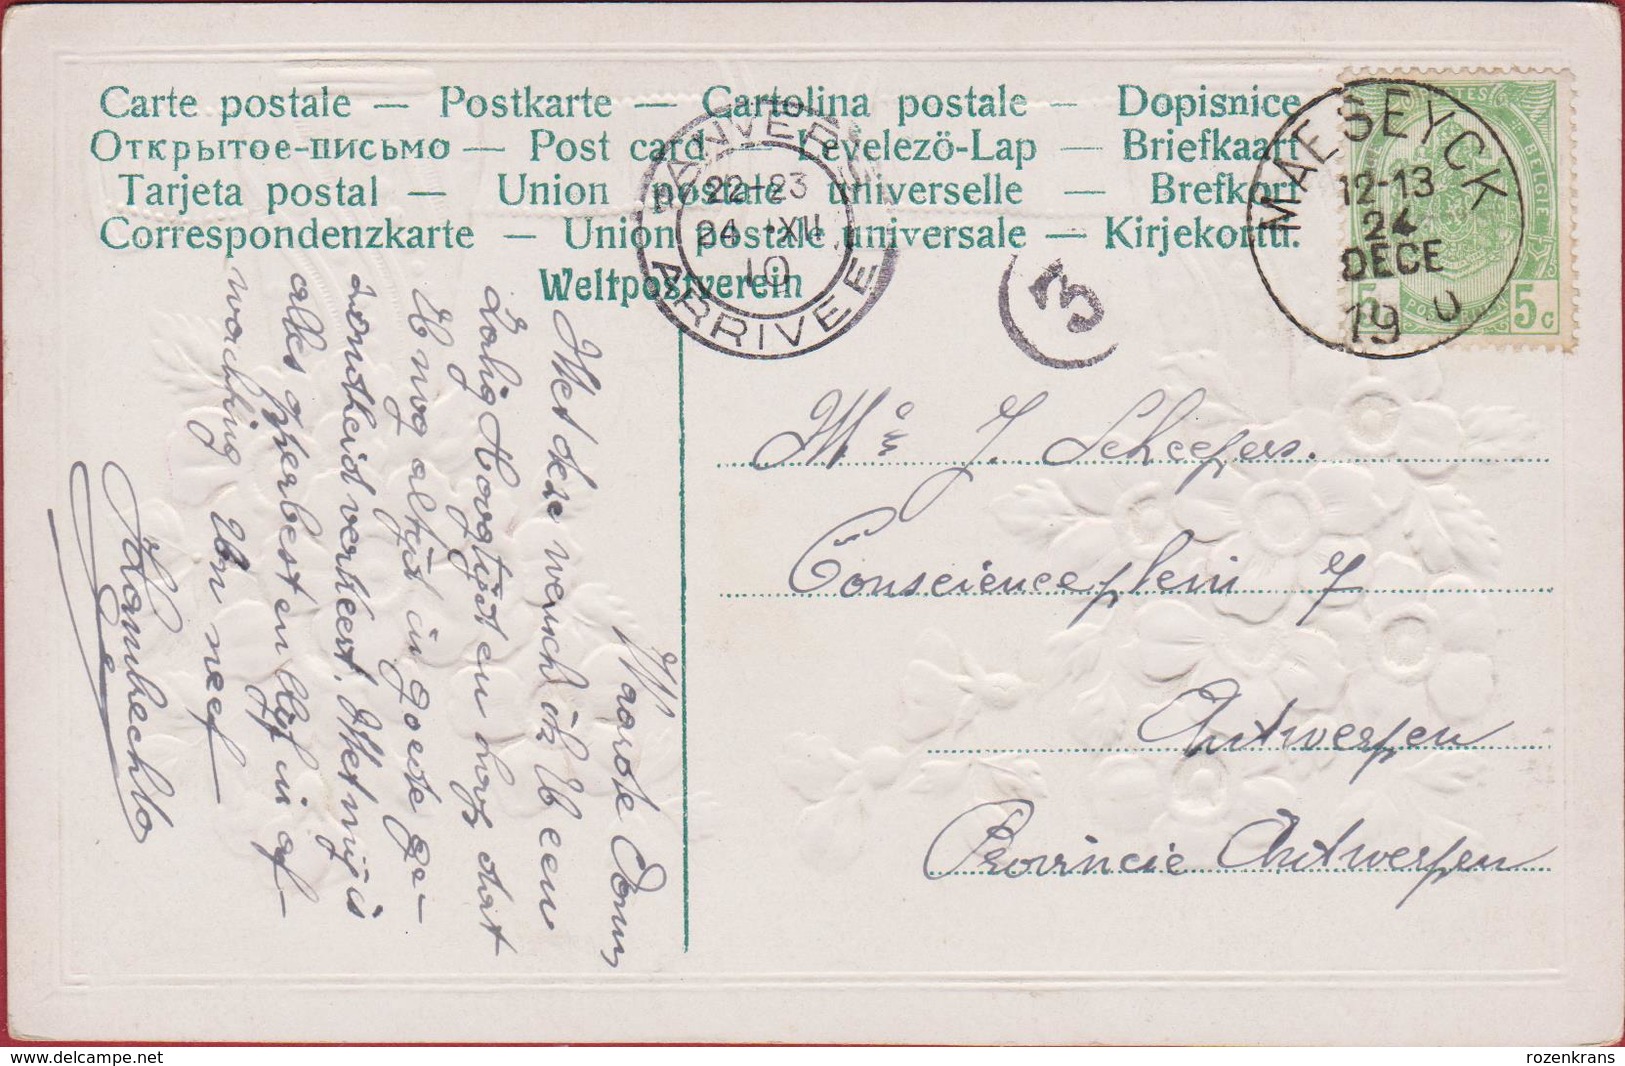 Carte postale — Postkarte — Cartolina postale — Dopisnice
Открытое-письмо — Post card — Levelezö-Lap — Briefkaart
Tarjeta postal — Union postale universelle — Brefkort
Correspondenzkarte — Union postale universale — Kirjekortti.
Weltpostverein
ANVERS
22-23
24 XII
10
ARRIVEE
3
MAESEYCK
12-13
24
DECE
19
POSTES
BELGIE
5 5c
Waarde
Met deze wensch ik U een
Zalig Hoogtijd en hoop dat
U nog altijd in goede ge-
zondheid verkeert. Met mij is
alles opperbest en blijf in af-
wachting Uw neef
Mr J. Scheefers.
Conscienceplein 7
Antwerpen
Provincie Antwerpen
rozenkrans
www.delcampe.net